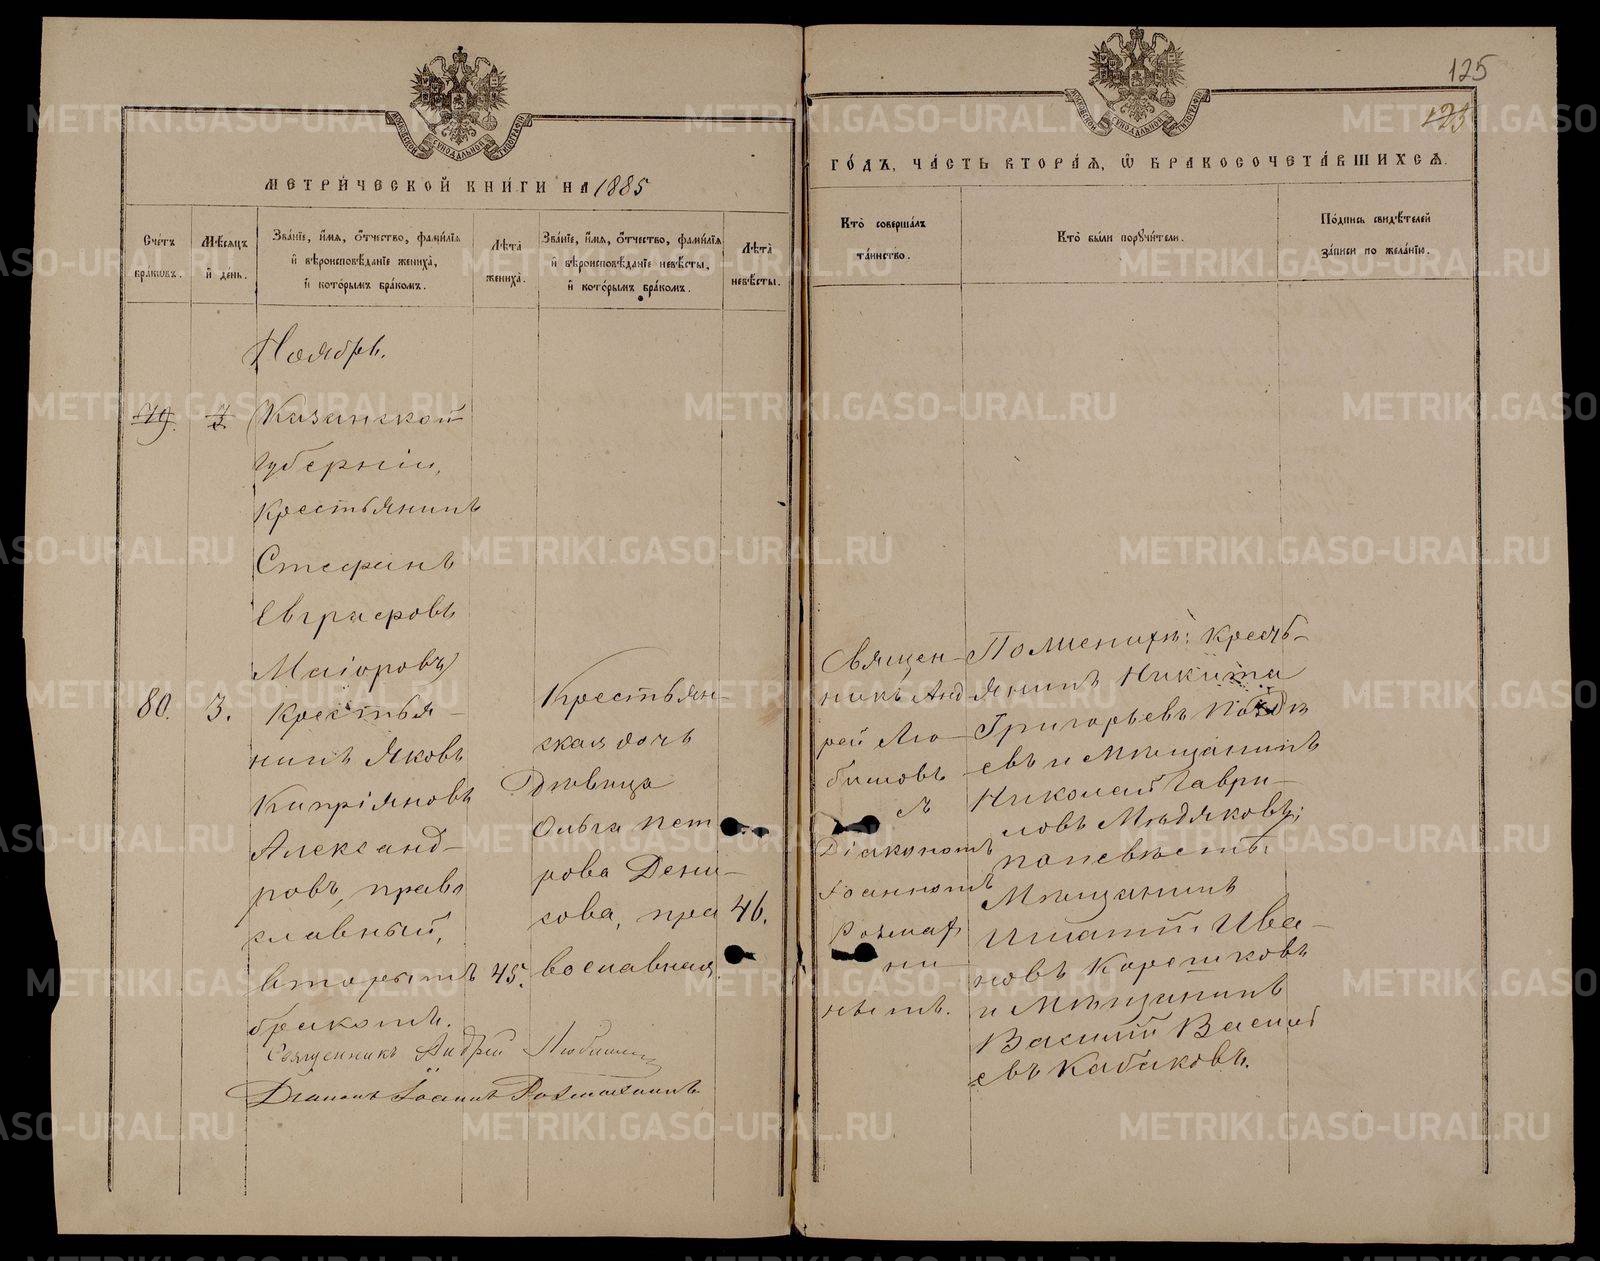 125
123
МЕТРИ́ЧЕСКОЙ КНИ́ГИ НА 1885
ГО́ДЪ, ЧА́СТЬ ВТОРА́Я, Ѡ҆ БРАКОСОЧЕТА́ВШИХСЯ.
Сче́тъ бра́кѡвъ.
Мѣ́сяцъ и҆ де́нь.
Зва́нїе, и҆́мя, ѻ҆́тчество, фами́лїя
и҆ вѣроисповѣ́данїе жениха̀,
и҆ кото́рымъ бра́комъ.
Лѣ́та жениха̀.
Зва́нїе, и҆́мя, ѻ҆́тчество, фами́лїя
и҆ вѣроисповѣ́данїе невѣ́сты,
и҆ кото́рымъ бра́комъ.
Лѣ́та невѣ́сты.
Кто̀ соверша́лъ
та́инство.
Кто̀ бы́ли порꙋчи́тели.
По́дпись свидѣ́телей
за́писи по жела́нїю.
Ноябрь.
79. 3
Казанской
губерніи,
крестьянинъ
Стефанъ
Евграфовъ
Маіоровъ
80. 3.
Крестья-
нинъ Яковъ
Кипріяновъ
Александ-
ровъ, право
славный,
вторымъ 45.
бракомъ.
Крестьян-
ская дочь
Дѣвица
Ольга Пет
рова Дени-
сова, пра 46.
вославная
Священ-
никъ Анд
рей Лю-
бимовъ
съ
Діакономъ
Іоанномъ
Рахма
ни-
нымъ.
По женихѣ: кресть-
янинъ Никита
Григорьевъ
евъ и Мѣщанинъ
Николай Гаври-
ловъ Мѣдяковъ;
по невѣстѣ:
Мѣщанинъ
Ипатій Ива-
новъ Корешковъ
и Мѣщанинъ
Василій Василь
евъ Кабаковъ.
Священникъ Андрей Любимовъ
Діаконъ Іоаннъ Рахманинъ
METRIKI.GASO-URAL.RU